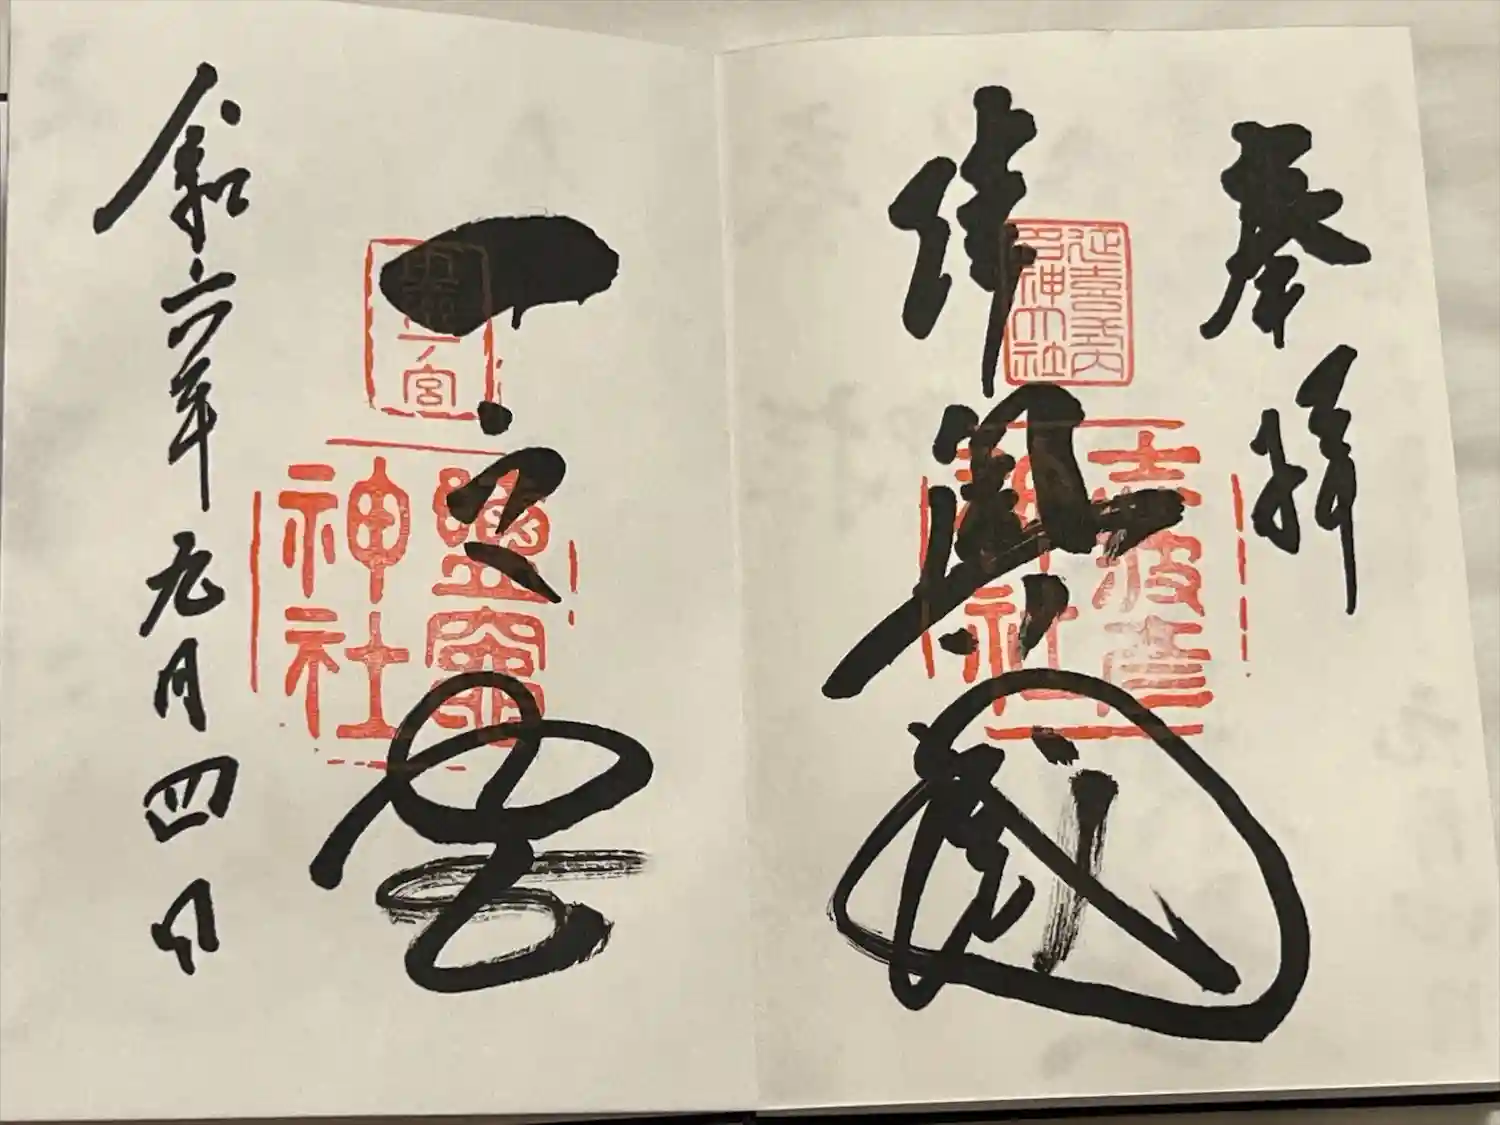 奉拝
延喜式内
名神大社
志波彦
神社
陸奥國
一之宮
一宮
鹽竈
神社
令和六年九月四日